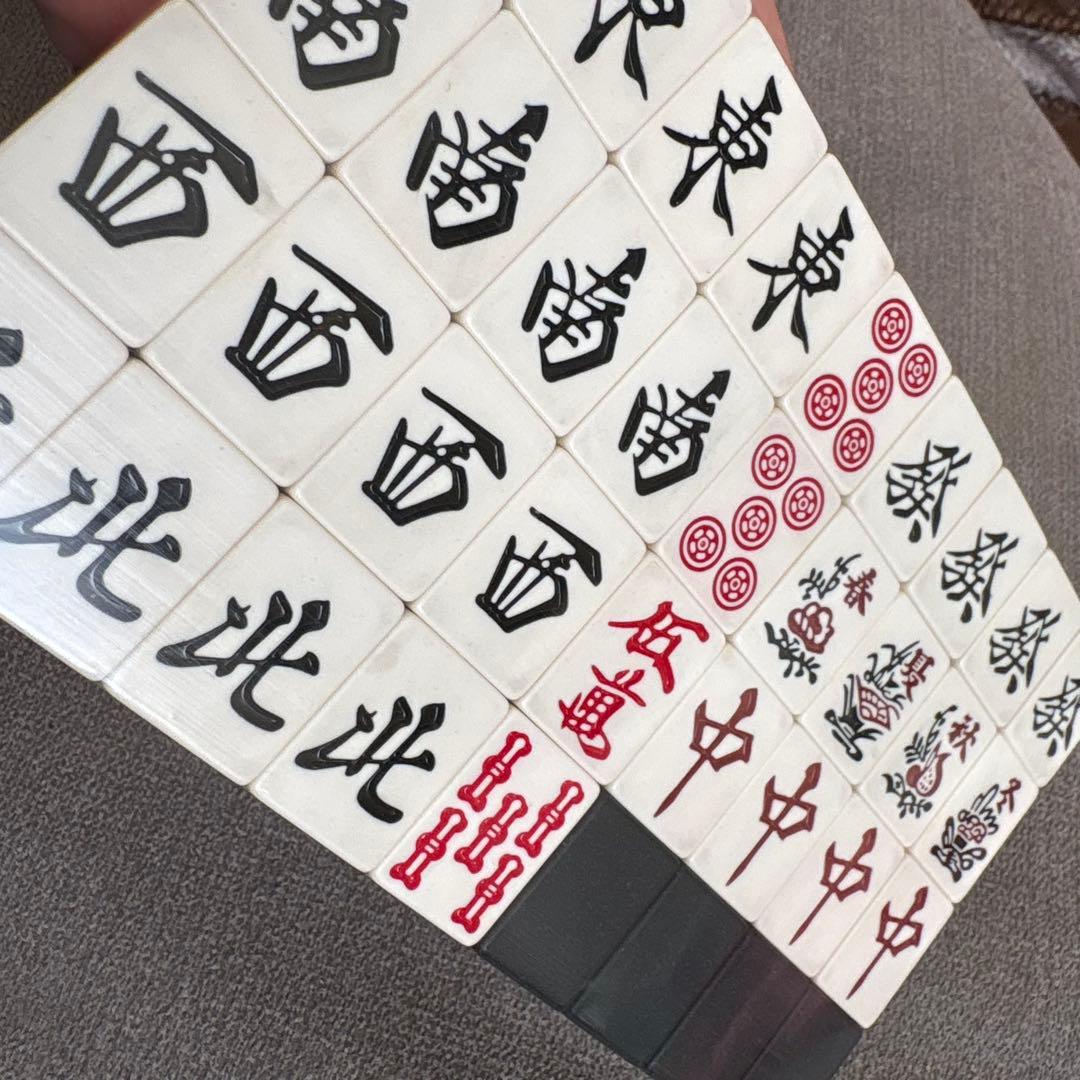 東 東 東 發 發 發 發
南 南 南 南 春 夏 秋 冬
西 西 西 西 伍萬 中 中 中 中
北 北 北